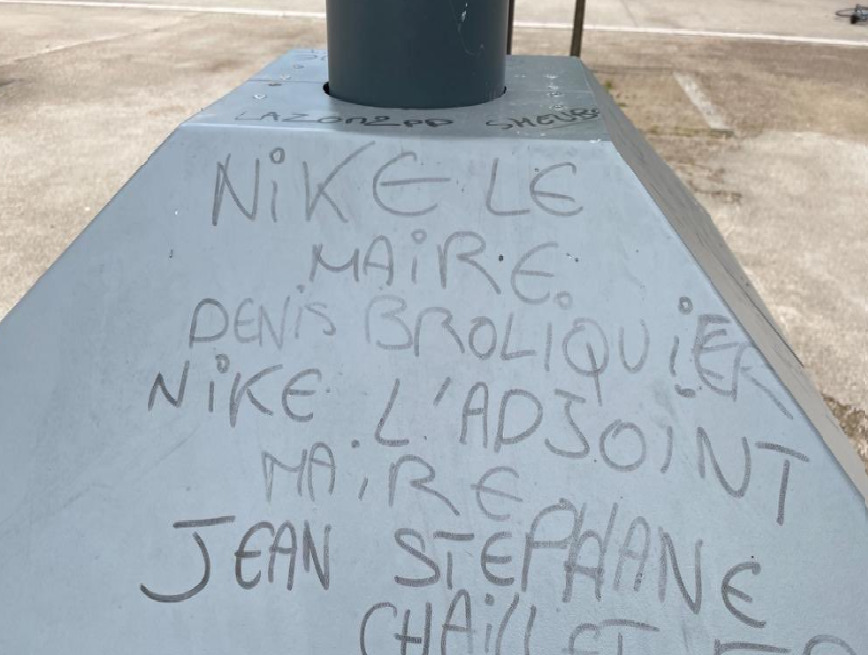 LAZON2PP SHEUB
NiKE LE
MAiRE.
DENiS BROLiQUiER
NiKE L'ADJOiNT
MAiRE
JEAN STEPHANE
CHAiLLET